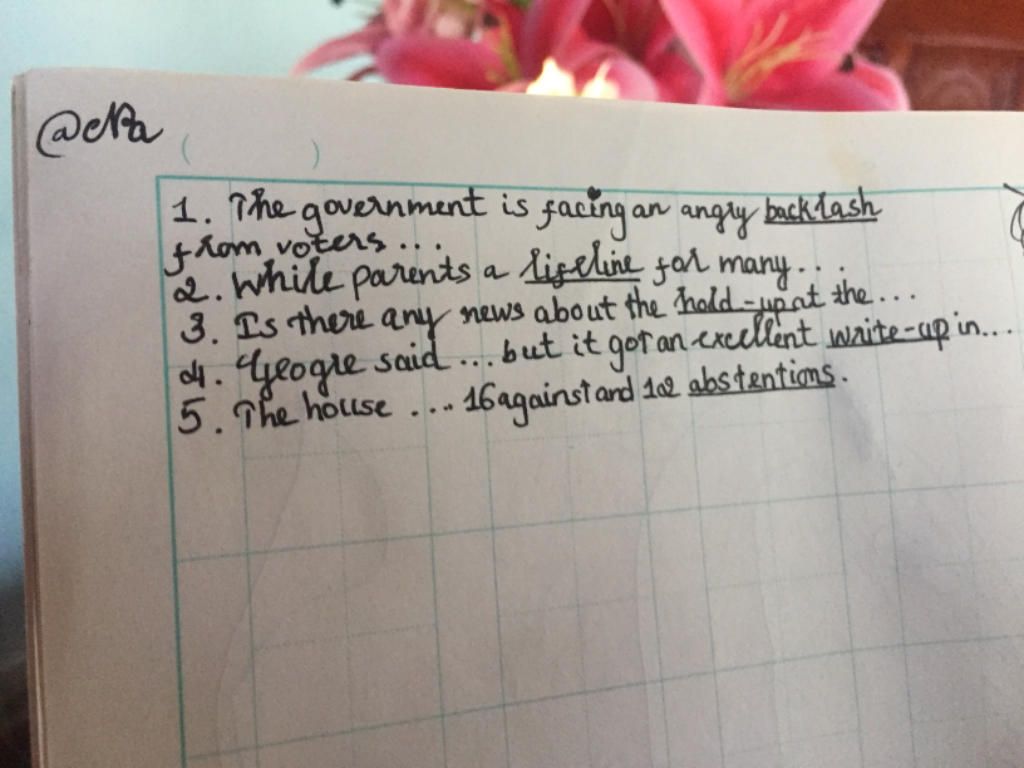 @cNa
( )
1. The government is facing an angry backlash
from voters...
2. While parents a lifeline for many...
3. Is there any news about the hold-up at the...
4. Geogre said ... but it got an excellent write-up in...
5. The house .... 16 against and 12 abstentions.